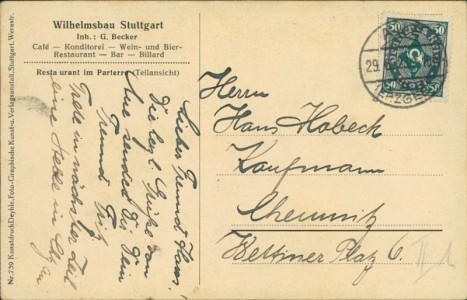 Wilhelmsbau Stuttgart
Inh.: G. Becker
Café — Konditorei — Wein- und Bier-
Restaurant — Bar — Billard
Restaurant im Parterre (Teilansicht)
Nr. 739 Kunstdruck Deyhle, Foto-Graphische Kunst- u. Verlagsanstalt, Stuttgart, Wernstr.
Lieber Freund Hans!
Die besten Grüße von
Aue sendet Dir Dein
Freund Fritz
Trete in nächster Zeit
eine Stelle in
Herrn
Hans Habeck
Kaufmann
Chemnitz
Wettiner Platz 6. II
50
50
29.
(ERZGEB.)